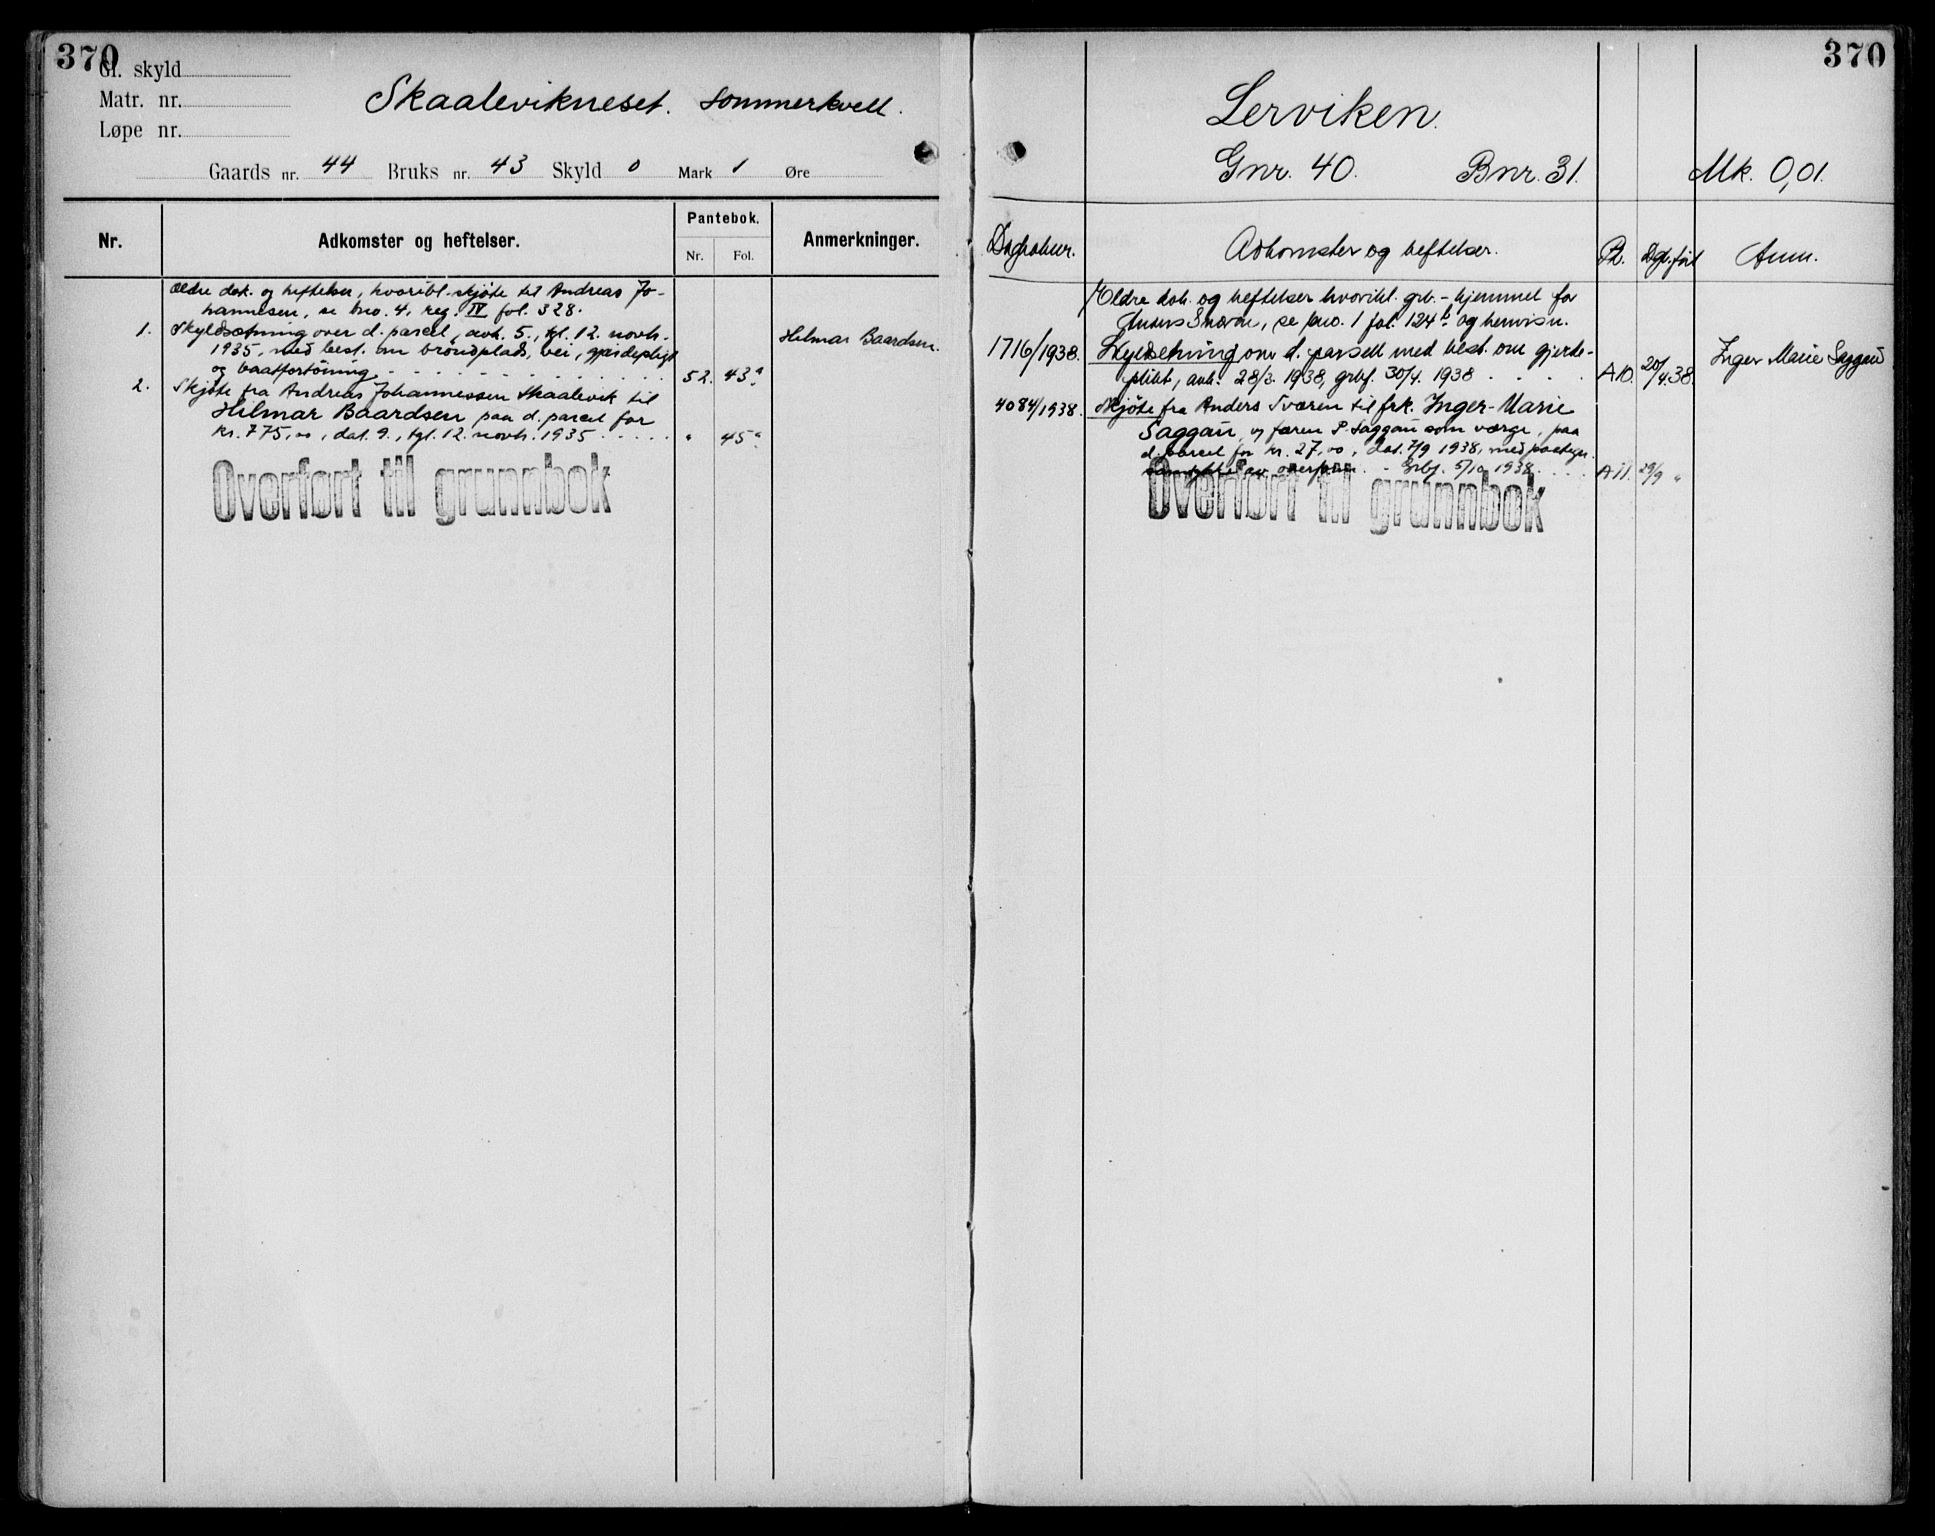 370
Gl. skyld
Matr. nr.
Løpe nr.
Skaalevikneset. Sommerkvell.
Gaards nr. 44 Bruks nr. 43 Skyld 0 Mark 1 Øre
Nr. Adkomster og heftelser. Pantebok. Anmerkninger.
Nr. Fol.
Ældre dok. og heftelser, hvoribl. skjøte til Andreas Jo-
hannesen, se bno. 4, reg. IV fol. 328.
1. Skyldsætning over d. parcel, avh. 5., tgl. 12. novb. Hilmar Baardsen.
1935, med best. om brøndplads, vei, gjærdepligt
og baatfortöining 52. 43a
2. Skjøte fra Andreas Johannessen Skaalevik til
Hilmar Baardsen paa d. parcel for
kr. 775,00, dat. 9., tgl. 12. novb. 1935 " 45a
Overført til grunnbok
370
Lerviken.
Gnr. 40. Bnr. 31. Mk. 0,01.
Dagboknr. Adkomster og heftelser. Pb. Dgb.ført Anm.
Eldre dok. og heftelser hvoribl. grb.-hjemmel for
Anders Tværen, se bno. 1 fol. 124b og henvisn.
1716/1938. Skyldsetning over d. parsell med best. om gjerde-
plikt, avh. 28/3. 1938, grbf. 30/4. 1938 A10. 20/4.38. Inger Marie Saggau
4084/1938. Skjöte fra Anders Tværen til frk. Inger-Marie
Saggau, v/ faren P. Saggau som værge, paa
d. parcel for kr. 27,00, dat. 7/9 1938, med paategn.
samtykke av overform. - Grbf. 5/10 1938 A 11. 29/9 "
Overført til grunnbok